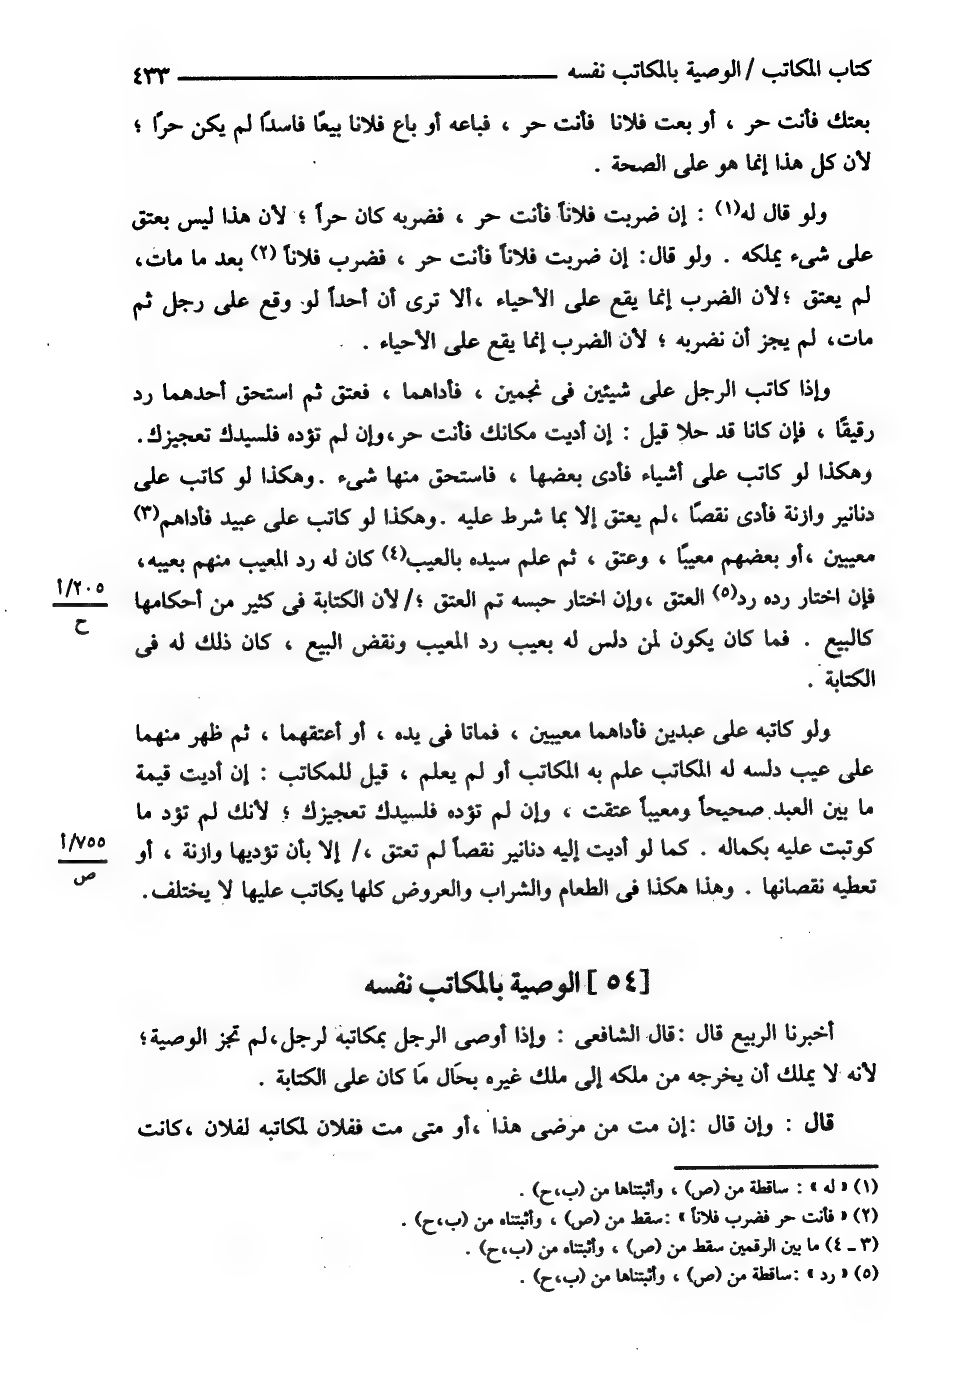 كتاب المكاتب / الوصية بالمكاتب نفسه ٤٣٣
بعتك فأنت حر ، أو بعت فلانا فأنت حر ، فباعه أو باع فلانا بيعًا فاسدًا لم يكن حرًا ؛
لأن كل هذا إنما هو على الصحة .
ولو قال له(١) : إن ضربت فلاناً فأنت حر ، فضربه كان حراً ؛ لأن هذا ليس بعتق
على شىء يملكه . ولو قال: إن ضربت فلاناً فأنت حر ، فضرب فلاناً (٢) بعد ما مات،
لم يعتق ؛لأن الضرب إنما يقع على الأحياء ،ألا ترى أن أحداً لو وقع على رجل ثم
مات، لم يجز أن نضربه ؛ لأن الضرب إنما يقع على الأحياء .
وإذا كاتب الرجل على شيئين فى نجمين ، فأداهما ، فعتق ثم استحق أحدهما رد
رقيقًا ، فإن كانا قد حلا قيل : إن أديت مكانك فأنت حر،وإن لم تؤده فلسيدك تعجيزك.
وهكذا لو كاتب على أشياء فأدى بعضها ، فاستحق منها شىء .وهكذا لو كاتب على
دنانير وازنة فأدى نقصًا ،لم يعتق إلا بما شرط عليه .وهكذا لو كاتب على عبيد فأداهم(٣)
معيبين ،أو بعضهم معيبًا ، وعتق ، ثم علم سيده بالعيب(٤) كان له رد المعيب منهم بعيبه،
فإن اختار رده رد(٥) العتق ،وإن اختار حبسه تم العتق ؛/ لأن الكتابة فى كثير من أحكامها
٢٠٥/أ
ح
كالبيع . فما كان يكون لمن دلس له بعيب رد المعيب ونقض البيع ، كان ذلك له فى
الكتابة .
ولو كاتبه على عبدين فأداهما معيبين ، فماتا فى يده ، أو أعتقهما ، ثم ظهر منهما
على عيب دلسه له المكاتب علم به المكاتب أو لم يعلم ، قيل للمكاتب : إن أديت قيمة
ما بين العبد صحيحاً ومعيباً عتقت ، وإن لم تؤده فلسيدك تعجيزك ؛ لأنك لم تؤد ما
كوتبت عليه بكماله . كما لو أديت إليه دنانير نقصاً لم تعتق ،/ إلا بأن تؤديها وازنة ، أو
٧٥٥/أ
ص
تعطيه نقصانها . وهذا هكذا فى الطعام والشراب والعروض كلها يكاتب عليها لا يختلف.
[ ٥٤ ] الوصية بالمكاتب نفسه
أخبرنا الربيع قال :قال الشافعى : وإذا أوصى الرجل بمكاتبه لرجل،لم تجز الوصية؛
لأنه لا يملك أن يخرجه من ملكه إلى ملك غيره بحال ما كان على الكتابة .
قال : وإن قال :إن مت من مرضى هذا ،أو متى مت ففلان لمكاتبه لفلان ،كانت
(١) « له » : ساقطة من (ص) ، وأثبتناها من (ب،ح) .
(٢) « فأنت حر فضرب فلاناً » :سقط من (ص) ، وأثبتناه من (ب،ح) .
(٣ ـ ٤) ما بين الرقمين سقط من (ص) ، وأثبتناه من (ب،ح) .
(٥) « رد » :ساقطة من (ص) ، وأثبتناها من (ب،ح) .